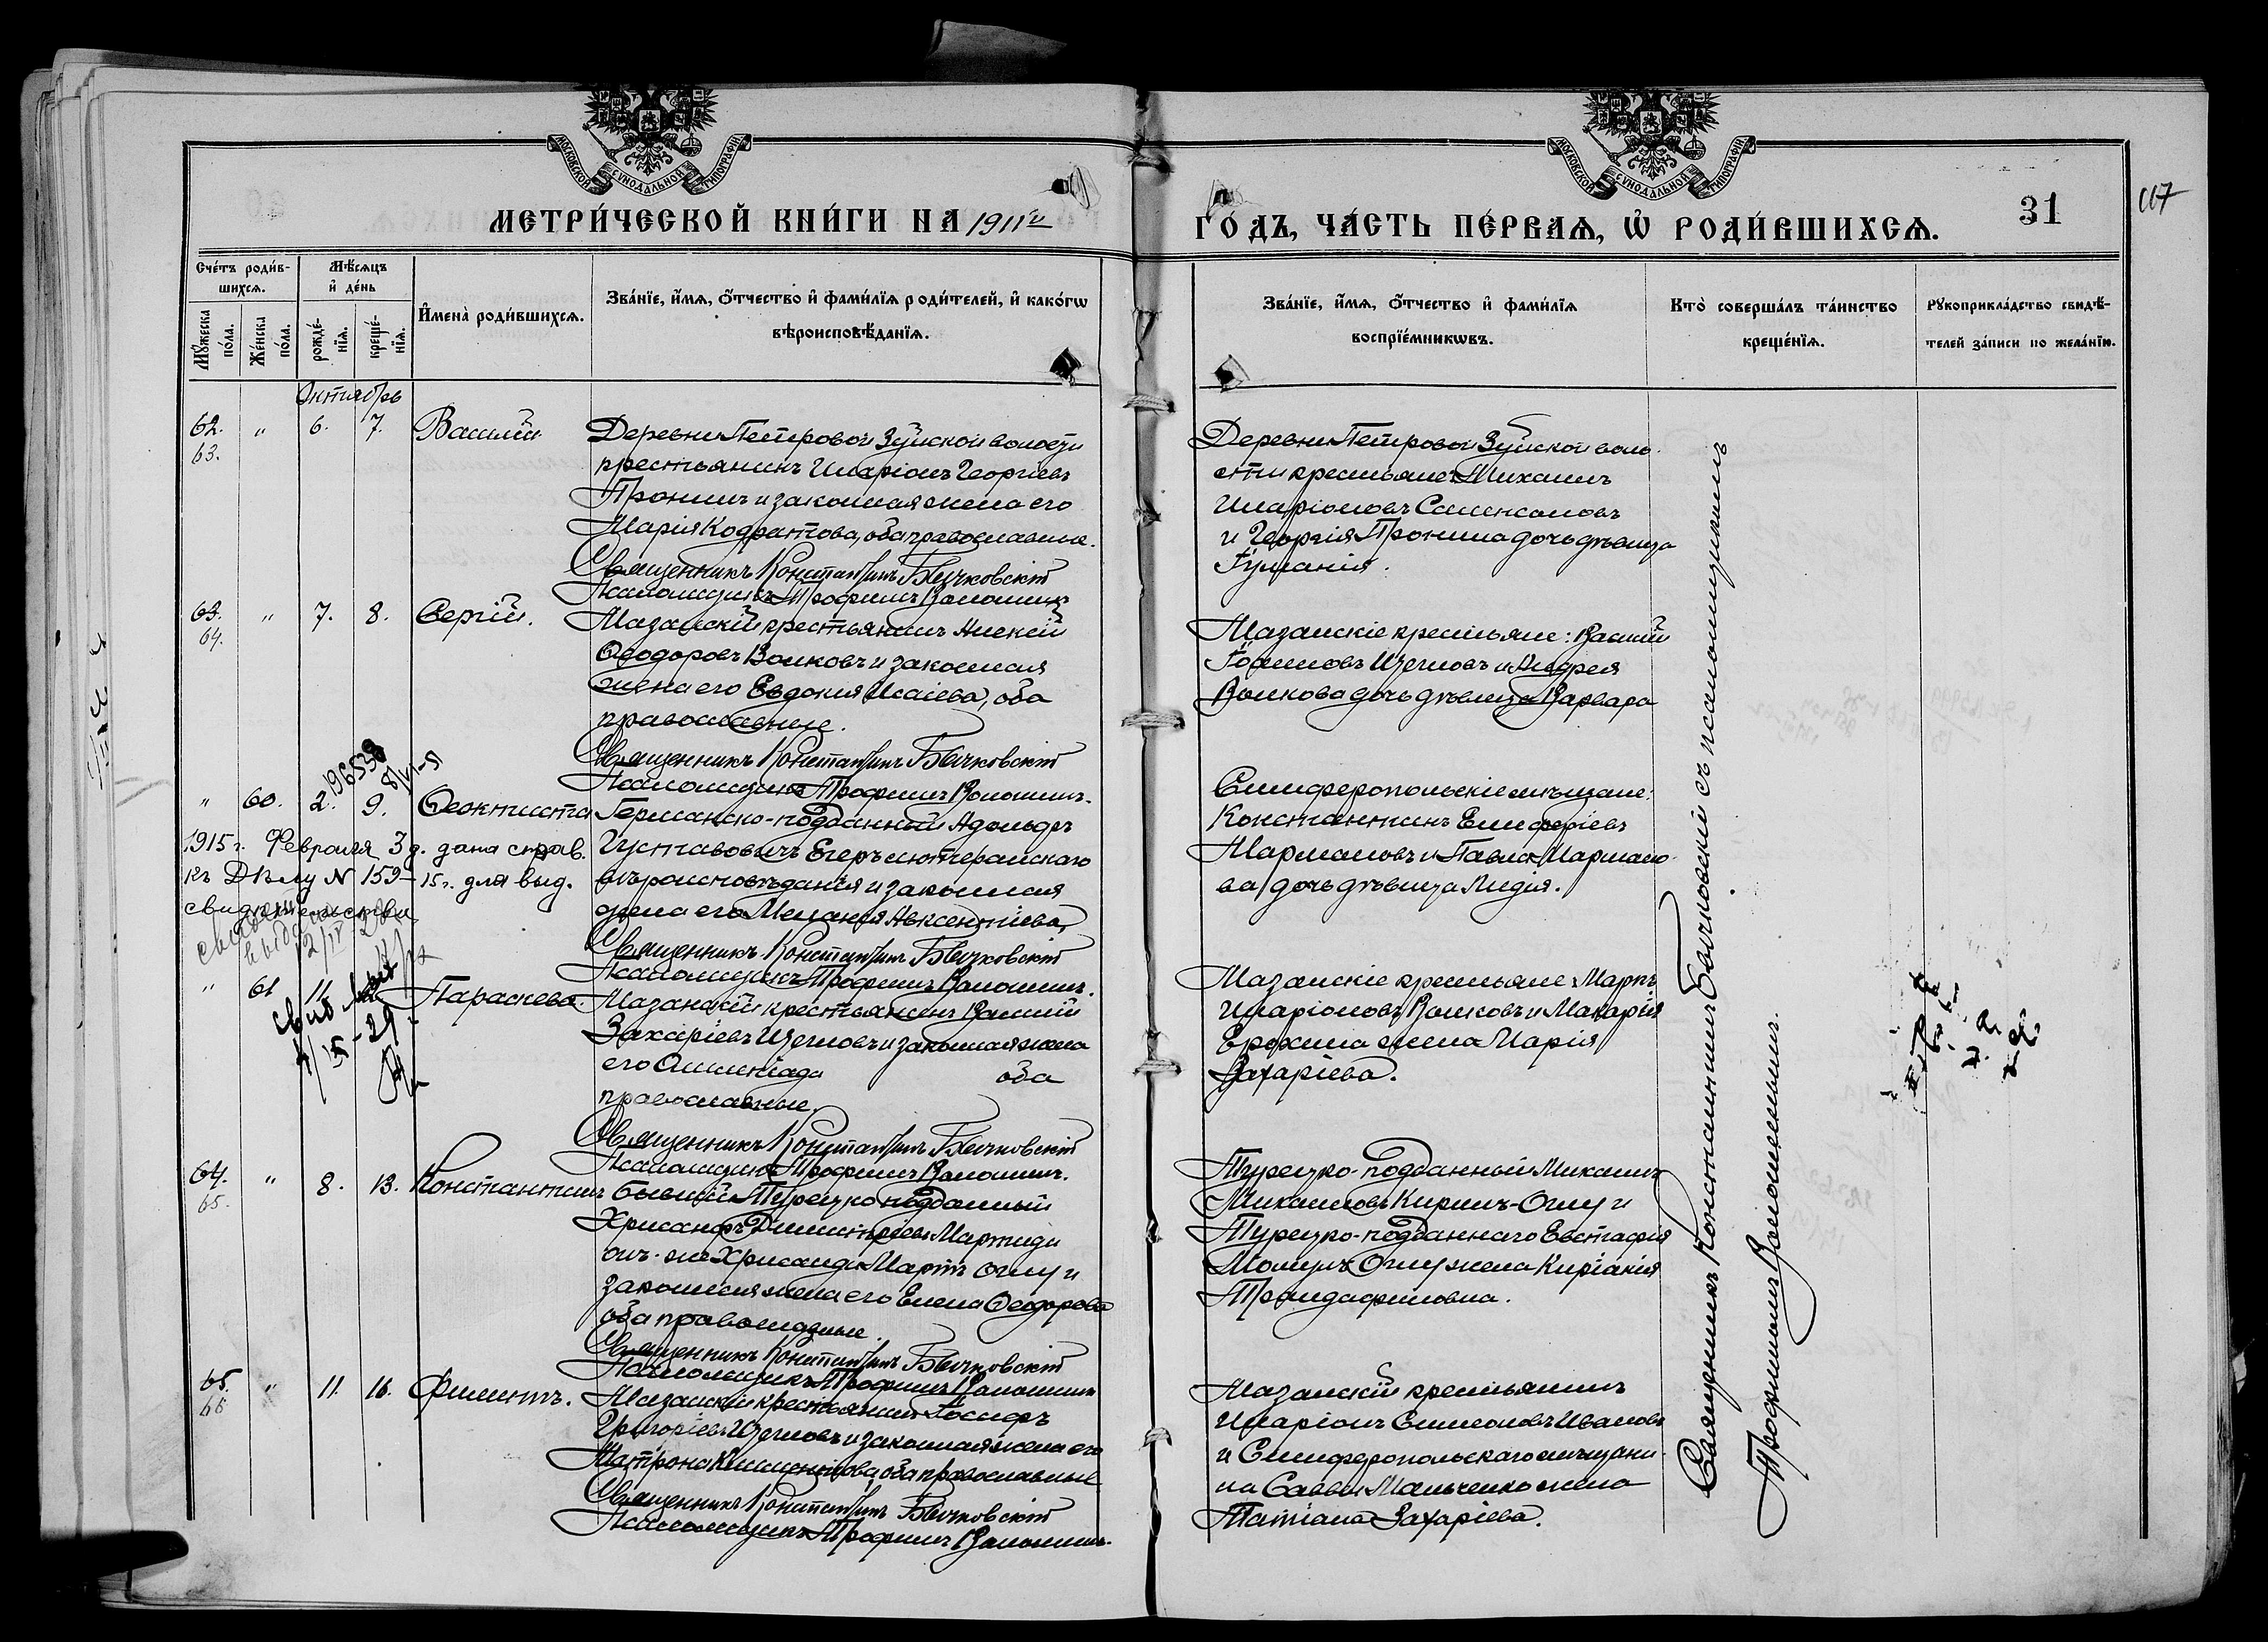 МОСКОВСКОЙ СУНОДАЛЬНОЙ ТИПОГРАФІИ
МОСКОВСКОЙ СУНОДАЛЬНОЙ ТИПОГРАФІИ
МЕТРИ́ЧЕСКОЙ КНИ́ГИ НА 1911й
ГО́ДЪ, ЧА́СТЬ ПЕ́РВАѦ, Ѡ҆ РОДИ́ВШИХСѦ.
31
117
Сче́тъ роди́в-
шихсѧ.
Мѣ́сѧцъ
и҆ де́нь
Мꙋ́жеска по́ла.
Же́нска по́ла.
рожде́-нїѧ.
креще́-нїѧ.
И҆мена̀ роди́вшихсѧ.
Зва́нїе, и҆́мѧ, ѻ҆́тчество и҆ фами́лїѧ роди́телей, и҆ како́гѡ
вѣроисповѣ́данїѧ.
Зва́нїе, и҆́мѧ, ѻ҆́тчество и҆ фами́лїѧ
воспрїе́мникѡвъ.
Кто̀ соверша́лъ та́инство
креще́нїѧ.
Рꙋкоприкла́дство свидѣ́-
телей за́писи по жела́нїю.
Октябрь
62. " 6. 7. Василій.
63.
Деревни Петровой Зуйской волости
крестьянинъ Иларіонъ Георгіевъ
Пронинъ и законная жена его
Марія Кодратова, оба православные.
Священникъ Константинъ Бычковскій
Псаломщикъ Трофимъ Волошинъ
Деревни Петровой Зуйской воло-
сти крестьяне: Михаилъ
Иларіоновъ Самсоновъ
и Георгія Пронина дочь дѣвица
Іуліанія.
63. " 7. 8. Сергій.
64.
Мазанскій крестьянинъ Алексій
Ѳеодоровъ Волковъ и законная
жена его Евдокія Исаіева, оба
православные.
Священникъ Константинъ Бычковскій
Псаломщикъ Трофимъ Волошинъ.
Мазанскіе крестьяне: Василій
Іосифовъ Изегловъ и Андрея
Волкова дочь дѣвица Варвара
196538
8/VI-51
" 60. 2. 9. Ѳеоктиста
Германско-подданный Адольфъ
Густавовичъ Егеръ лютеранскаго
вѣроисповѣданія и законная
жена его Меланія Авксентіева,
Священникъ Константинъ Бычковскій
Псаломщикъ Трофимъ Волошинъ.
1915 г. Февраля 3 д. дана справ.
къ Дѣлу № 159-15 г. для выд.
свидѣтельства
Симферопольскіе мѣщане:
Константинъ Елиферіевъ
Мармановъ и Павла Мармано-
ва дочь дѣвица Лидія.
" 61 11. Параскева.
Мазанскій крестьянинъ Василій
Захаріевъ Изегловъ и законная жена
его Олимпіада оба
православные.
Священникъ Константинъ Бычковскій
Псаломщикъ Трофимъ Волошинъ.
Мазанскіе крестьяне: Маркъ
Иларіоновъ Волковъ и Макарія
Ерохина жена Марія
Захаріева.
64. " 8. 13. Константинъ
65.
Бывшій Турецко-подданный
Хрисанфъ Димитріевъ Мартиди
онъ-же Хрисанфъ Мартъ Оглу и
законная жена его Елена Ѳеодорова
оба православные.
Священникъ Константинъ Бычковскій
Псаломщикъ Трофимъ Волошинъ
Турецко-подданный Михаилъ
Михаиловъ Кирилъ-Оглу и
Турецко-подданнаго Евстафія
Момулъ Оглу жена Киріакія
Трандафиловна.
65. " 11. 16. Филиппъ.
66
Мазанскій крестьянинъ Іосифъ
Григоріевъ Изегловъ и законная жена его
Матрона Климентова, оба православные
Священникъ Константинъ Бычковскій
Псаломщикъ Трофимъ Волошинъ.
Мазанскій крестьянинъ
Иларіонъ Симеоновъ Ивановъ
и Симферопольскаго мѣщани-
на Саввы Мальченко жена
Татіана Захаріева.
Священникъ Константинъ Бычковскій съ псаломщикомъ
Трофимомъ Волошинымъ.